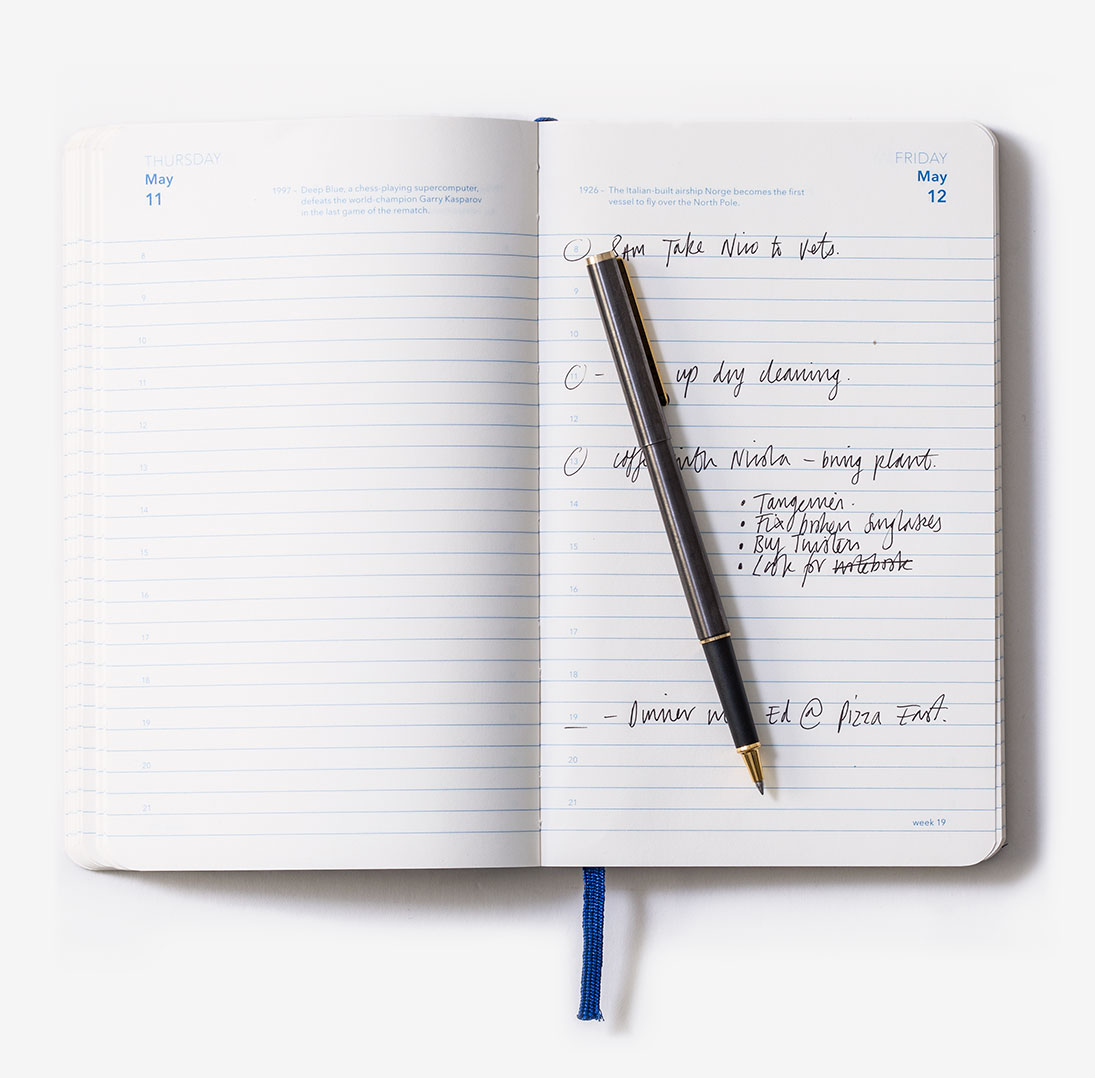 THURSDAY
May
11
1997 - Deep Blue, a chess-playing supercomputer,
defeats the world-champion Garry Kasparov
in the last game of the rematch.
8
9
10
11
12
13
14
15
16
17
18
19
20
21
FRIDAY
May
12
1926 - The Italian-built airship Norge becomes the first
vessel to fly over the North Pole.
8 8am Take Nino to Vets.
9
10
11 - up dry cleaning.
12
13 coffe with Nicola - bring plant.
14 • Tangerines.
• Fix broken sunglasses
15 • Buy Twisters
• Look for notebook
16
17
18
19 - Dinner Ed @ Pizza East.
20
21
week 19